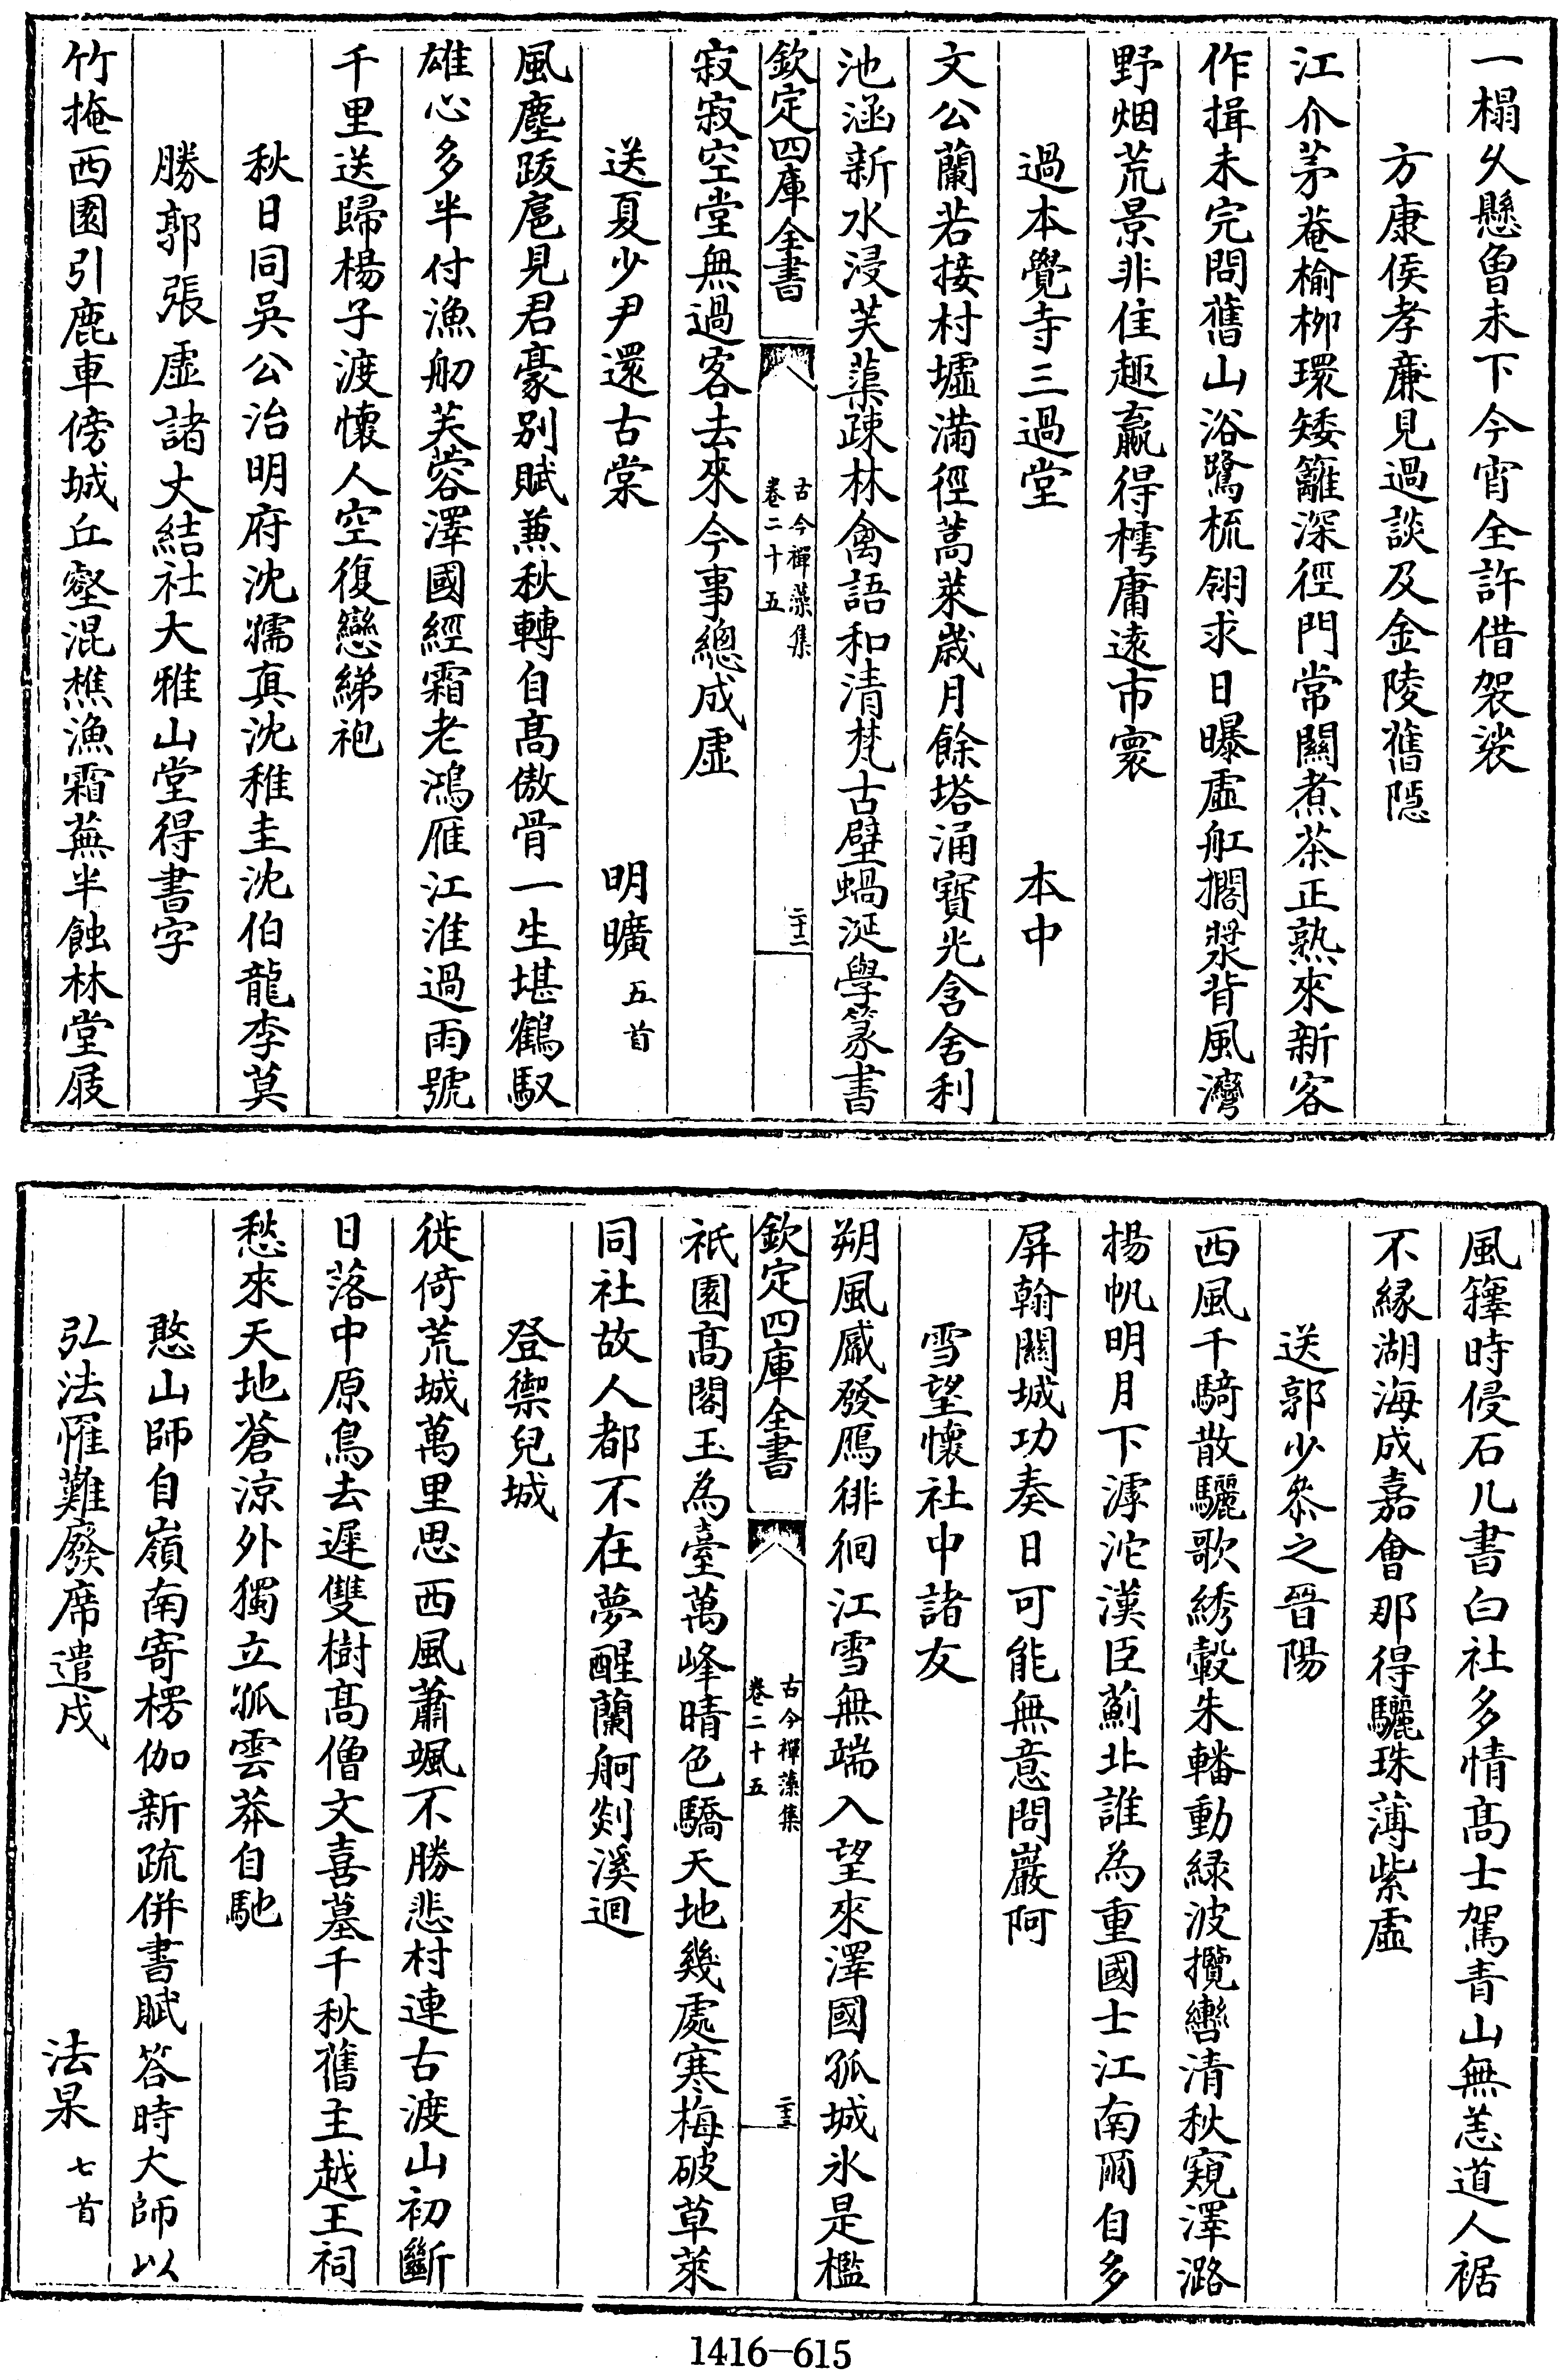 一榻乆懸曽未下今宵全許借袈裟
方康侯孝廉見過談及金陵舊隠
江介茅菴榆柳環矮籬深徑門常關煮茶正熟來新客
作揖未完問舊山浴鷺梳翎求日曝虛舡擱槳背風灣
野烟荒景非佳趣贏得樗庸逺市寰
過本覺寺三過堂 本中
文公蘭若接村墟滿徑蒿萊歳月餘塔涌寶光含舍利
池涵新水浸芙蕖疎林禽語和清梵古壁蝸涎學篆書
欽定四庫全書 古今禪藻集 卷二十五 二十二
寂寂空堂無過客去來今事總成虛
送夏少尹還古棠 明曠 五首
風塵跋扈見君豪别賦兼秋轉自髙傲骨一生堪鶴馭
雄心多半付漁舠芙蓉澤國經霜老鴻雁江淮過雨號
千里送歸楊子渡懷人空復戀綈袍
秋日同吳公治明府沈孺真沈稚圭沈伯龍李莫
勝郭張虛諸丈結社大雅山堂得書字
竹掩西園引鹿車傍城丘壑混樵漁霜蕪半蝕林堂屐
風籜時侵石几書白社多情髙士駕青山無恙道人裾
不縁湖海成嘉會那得驪珠薄紫虛
送郭少叅之晉陽
西風千騎散驪歌綉轂朱轓動緑波攬轡清秋窺澤潞
揚帆明月下滹沱漢臣薊北誰為重國士江南爾自多
屏翰關城功奏日可能無意問巖阿
雪望懷社中諸友
朔風觱發鴈徘徊江雪無端入望來澤國孤城氷是檻
欽定四庫全書 古今禪藻集 卷二十五 二十三
祇園髙閣玉為臺萬峰晴色驕天地幾處寒梅破草萊
同社故人都不在夢醒蘭舸剡溪迴
登禦兒城
徙倚荒城萬里思西風蕭颯不勝悲村連古渡山初斷
日落中原鳥去遲雙樹髙僧文喜墓千秋舊主越王祠
愁來天地蒼涼外獨立孤雲莽自馳
憨山師自嶺南寄楞伽新疏併書賦答時大師以
弘法罹難廢席遣戍 法杲 七首
1416-615